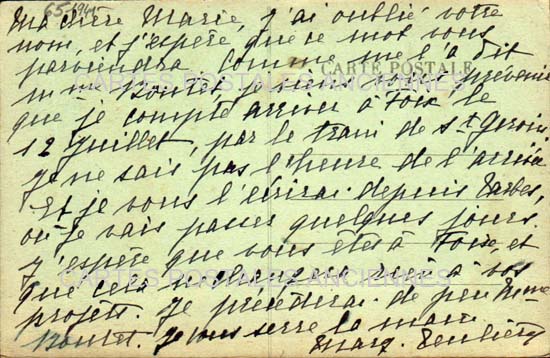 65-1941
Ma chère Marie, j'ai oublié votre
nom, et j'espère, que ce mot vous
parviendra. Comme me l'a dit
CARTE POSTALE
CARTES POSTALES ANCIENNES
Mme Boutet je viens vous prévenir
que je compte arriver à Foix le
12 Juillet, par le train de St Girons
Je ne sais pas l'heure de l'arrivée
Et je vous l'écrirai depuis Tarbes,
où je vais passer quelques jours.
J'espère que vous êtes à Foix, et
CARTES POSTALES ANCIENNES
que cela ne changera rien à vos
projets. Je précèderai de peu Mme
Boutet. Je vous serre la main.
Marg.